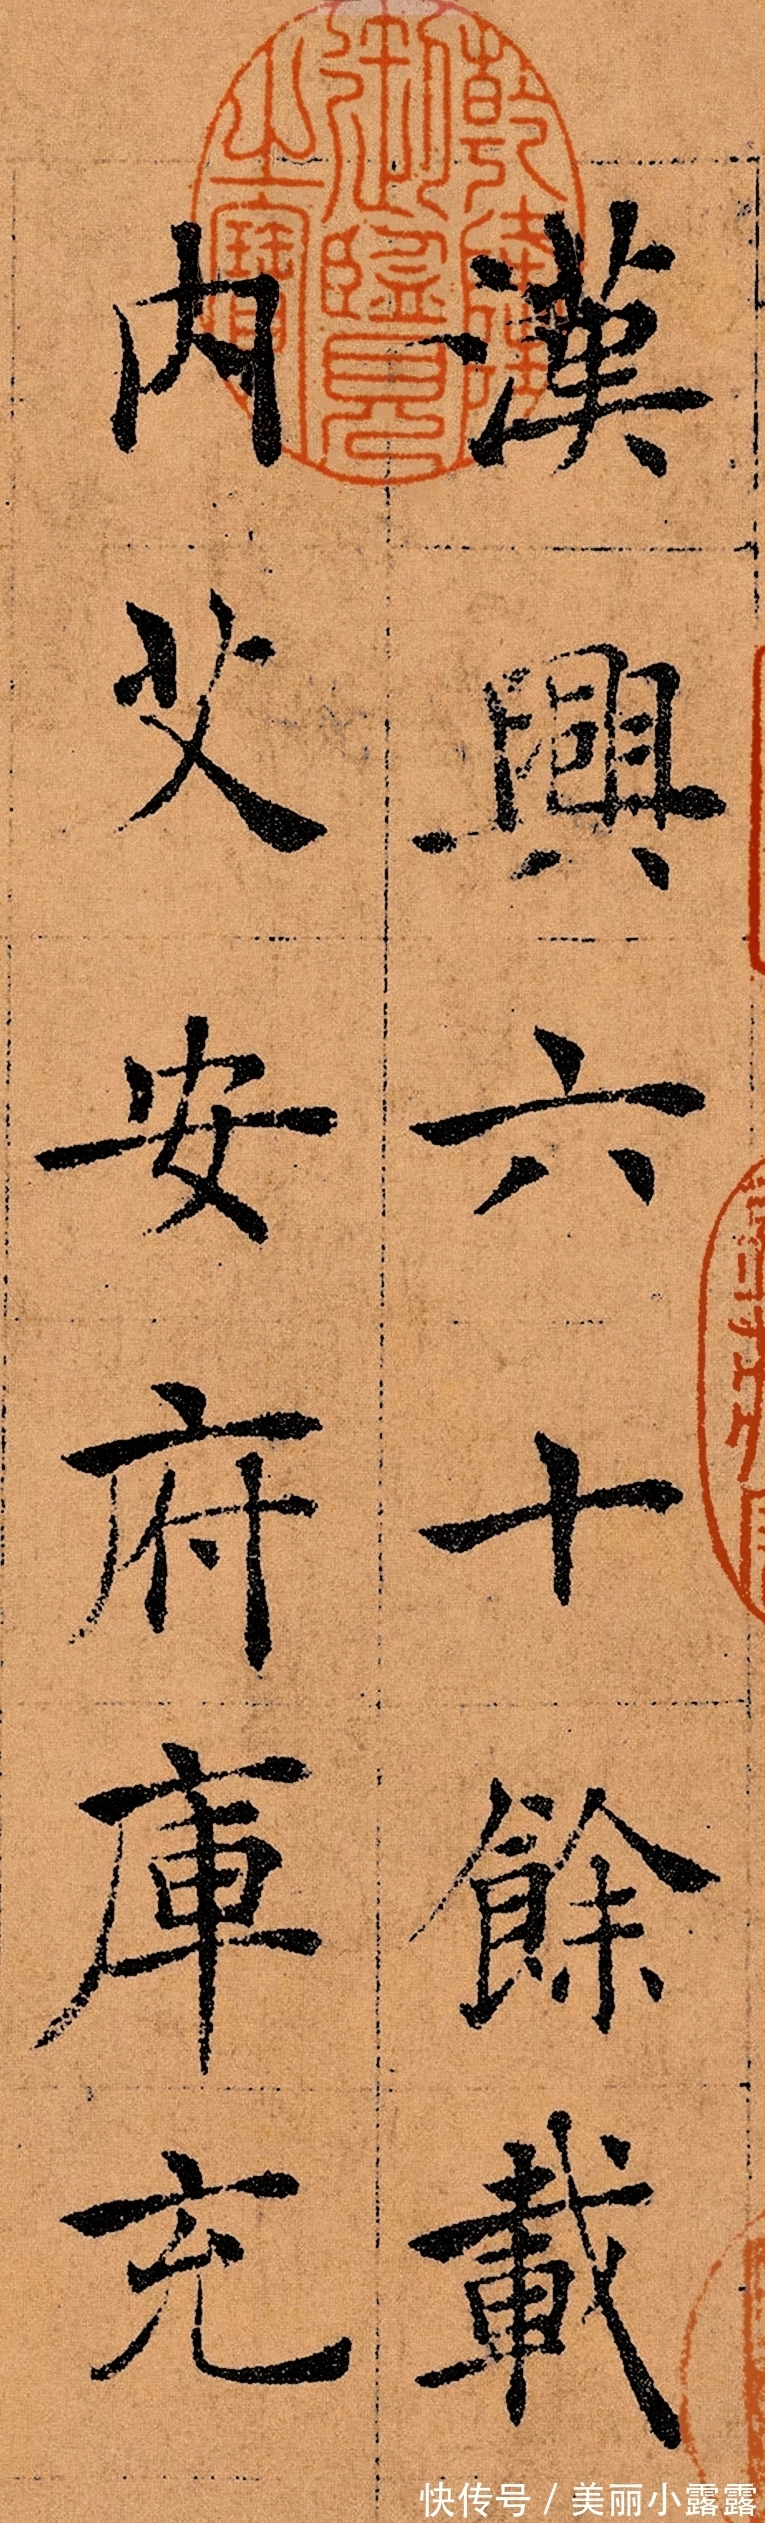 乾隆
御覽
之寶
漢興六十餘載
内艾安府庫充
快传号 / 美丽小露露